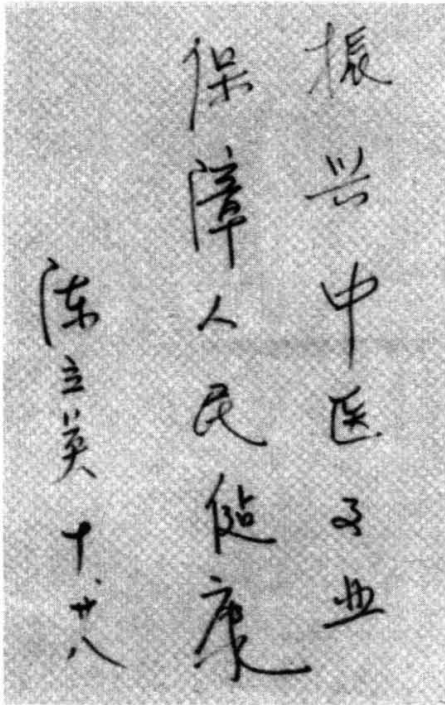 振兴中医事业
保障人民健康
陈立英 十.廿八